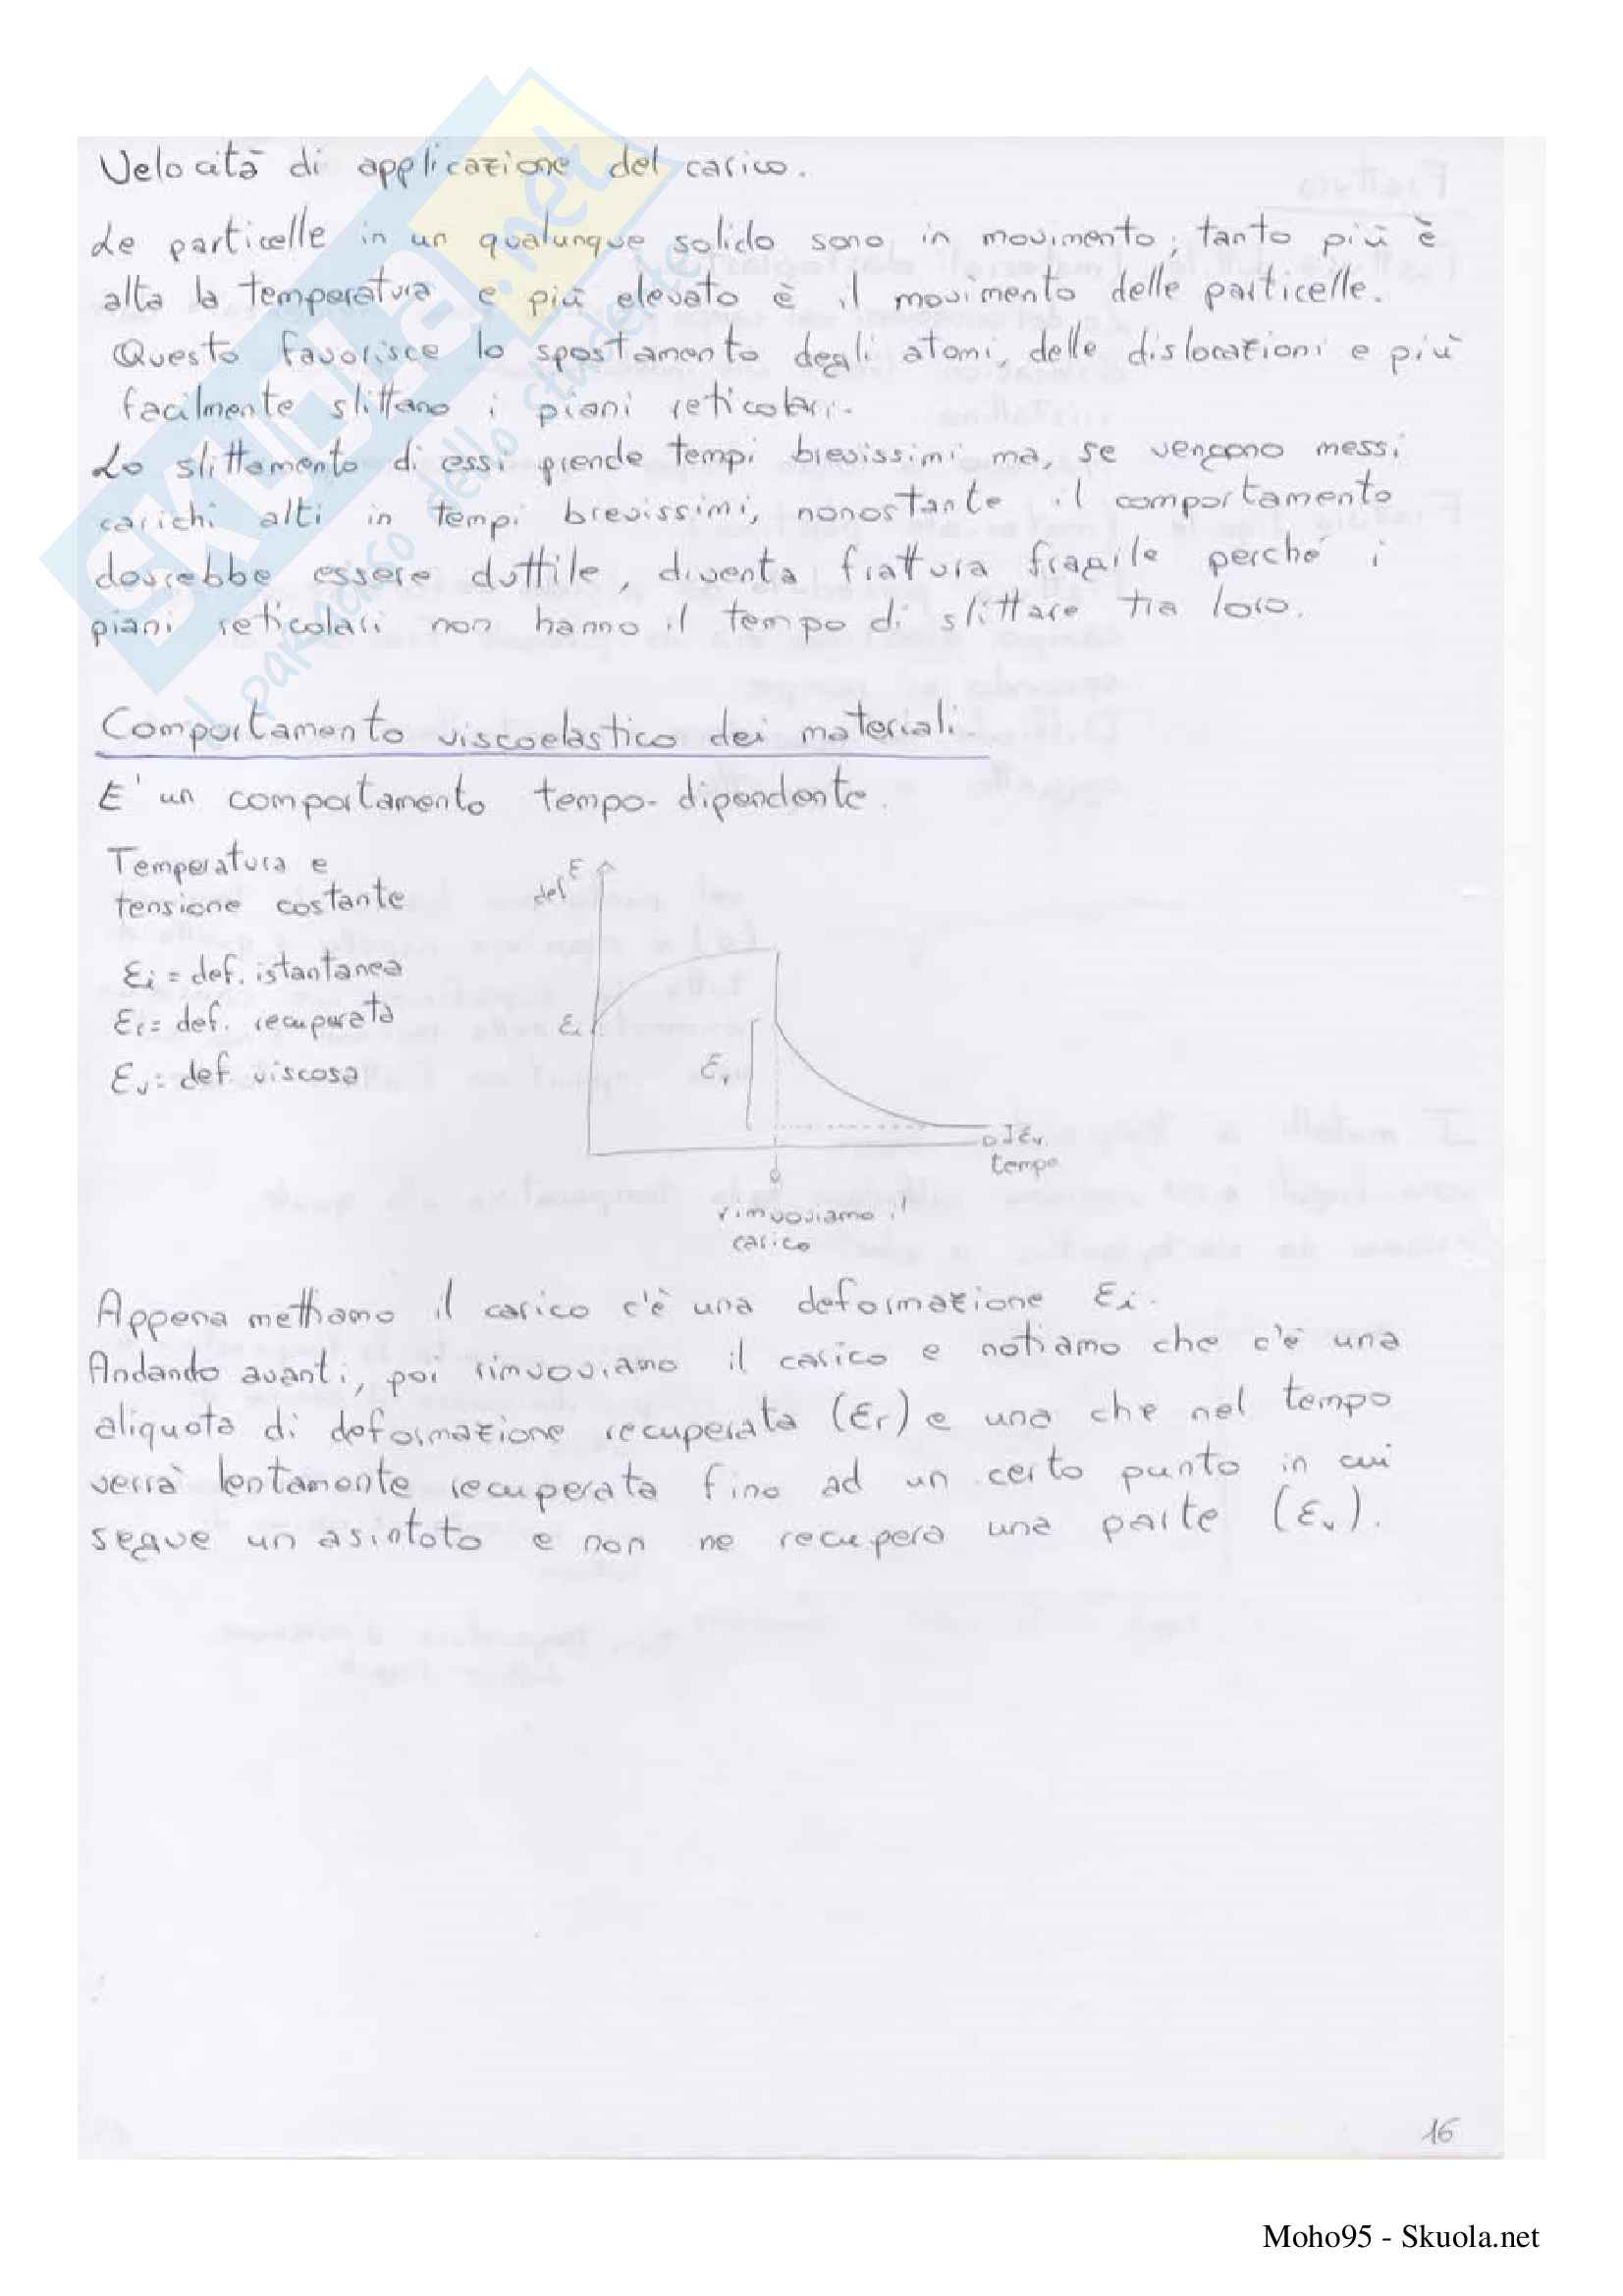 Velocità di applicazione del carico.
Le particelle in un qualunque solido sono in movimento; tanto più è
alta la temperatura e più elevato è il movimento delle particelle.
Questo favorisce lo spostamento degli atomi, delle dislocazioni e più
facilmente slittano i piani reticolari.
Lo slittamento di essi prende tempi brevissimi ma, se vengono messi
carichi alti in tempi brevissimi, nonostante il comportamento
dovrebbe essere duttile, diventa frattura fragile perché i
piani reticolari non hanno il tempo di slittare tra loro.
Comportamento viscoelastico dei materiali.
E' un comportamento tempo-dipendente.
Temperatura e
tensione costante
εi = def. istantanea
εr = def. recuperata
εv = def. viscosa
def ε
εi
εr
εv
tempo
rimuoviamo il
carico
Appena mettiamo il carico c'è una deformazione εi.
Andando avanti, poi rimuoviamo il carico e notiamo che c'è una
aliquota di deformazione recuperata (εr) e una che nel tempo
verrà lentamente recuperata fino ad un certo punto in cui
segue un asintoto e non ne recupera una parte (εv).
16
SKUOLA.net
il paradiso dello studente
Moho95 - Skuola.net